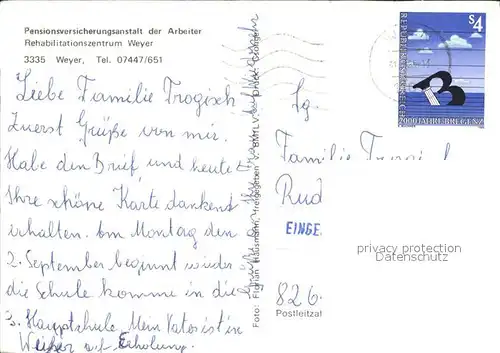 Pensionsversicherungsanstalt der Arbeiter
Rehabilitationszentrum Weyer
3335 Weyer, Tel. 07447/651
Liebe Familie Trogisch
Zuerst Grüße von mir.
Habe den Brief und heute
Ihre schöne Karte dankend
erhalten. Am Montag den
2. September beginnt wieder
die Schule komme in die
3. Hauptschule. Mein Vater ist in
Weyer auf Erholung.
Foto: Florian Hausmann, freigegeben v. BMfLV. Druck:
S 4
REPUBLIK ÖSTERREICH
2000 JAHRE BREGENZ
B
Fg.
Familie
Rud
EINGE
privacy protection
Datenschutz
826
Postleitzat